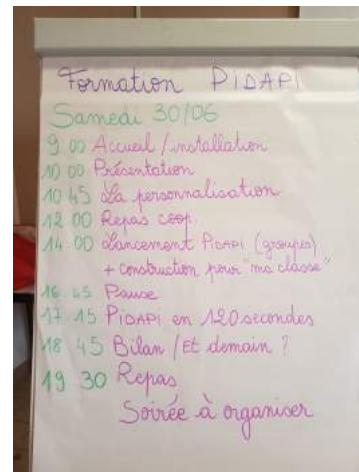 Formation PIDAPI
Samedi 30/06
9 00 Accueil / installation
10 00 Présentation
10 45 La personnalisation
12 00 Repas coop.
14 00 Lancement PIDAPI (groupes)
+ construction pour "ma classe"
16 45 Pause
17 15 PIDAPI en 120 secondes
18 45 Bilan / Et demain ?
19 30 Repas
Soirée à organiser